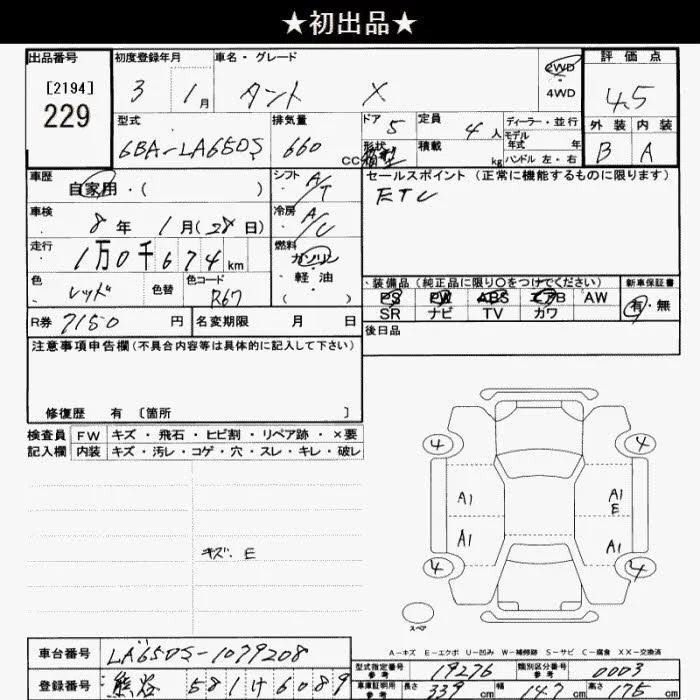 ★初出品★
出品番号 初度登録年月 車名・グレード 評価点
[2194]
229
3年 1月 タント X
2WD
4WD
4.5
型式 排気量 ドア 5 定員 4人 ディーラー・並行
モデル年式 年
6BA-LA650S 660 CC 形状 箱型 積載 kg ハンドル 左・右
外装 内装
B A
車歴 自家用・( )
シフト A/T
セールスポイント(正常に機能するものに限ります)
ETC
車検 8年 1月(28日)
冷房 A/C
走行 1万0千674km
燃料 ガソリン・軽・油 ( )
色 レッド 色替 色コード R67
装備品(純正品に限り○をつけてください) 新車保証書
PS PW ABS エアB AW
SR ナビ TV カワ
有・無
R券 7150円 名変期限 月 日
後日品
注意事項申告欄(不具合内容等は具体的に記入して下さい)
修復歴 有 〔箇所 〕
検査員 FW キズ・飛石・ヒビ割・リペア跡・×要
記入欄 内装 キズ・汚レ・コゲ・穴・スレ・キレ・破レ
キズ.E
4 4
A1 A1
E
A1 A1
4 4
スペア
A-キズ E-エクボ U-凹み W-補修跡 S-サビ C-腐食 XX-交換済
車台番号 LA650S-1079208
型式指定番号 参考 19276 類別区分番号 参考 0003
登録番号 熊谷 581け6089
車庫証明用 参考 長さ 339cm 幅 147cm 高さ 175cm